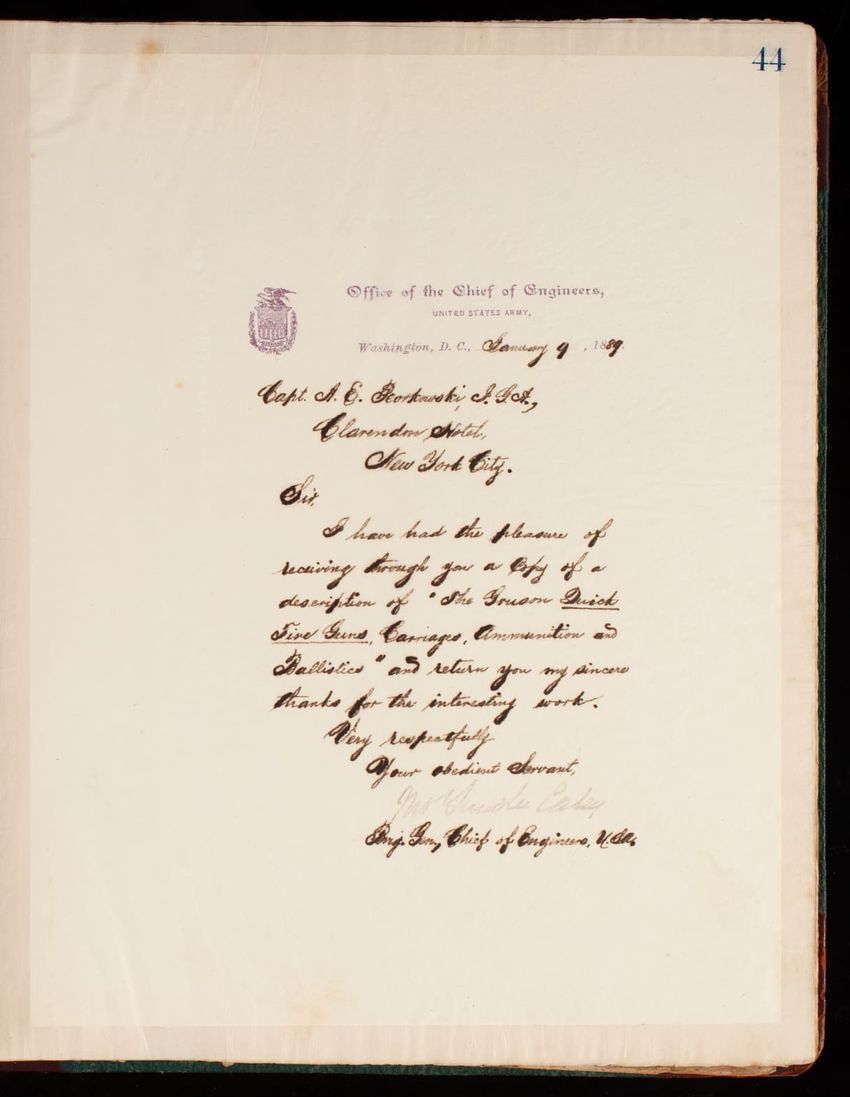 44
Office of the Chief of Engineers,
UNITED STATES ARMY,
Washington, D. C., January 9, 1889.
Capt. A. E. Borkowski, I.G.A.,
Clarendon Hotel,
New York City.
Sir,
I have had the pleasure of
receiving through you a Copy of a
description of "The Gruson Quick
Fire Guns, Carriages, Ammunition and
Ballistics" and return you my sincere
thanks for the interesting work.
Very respectfully
Your obedient Servant,
Thos Lincoln Casey
Brig. Gen, Chief of Engineers, U.S.A.